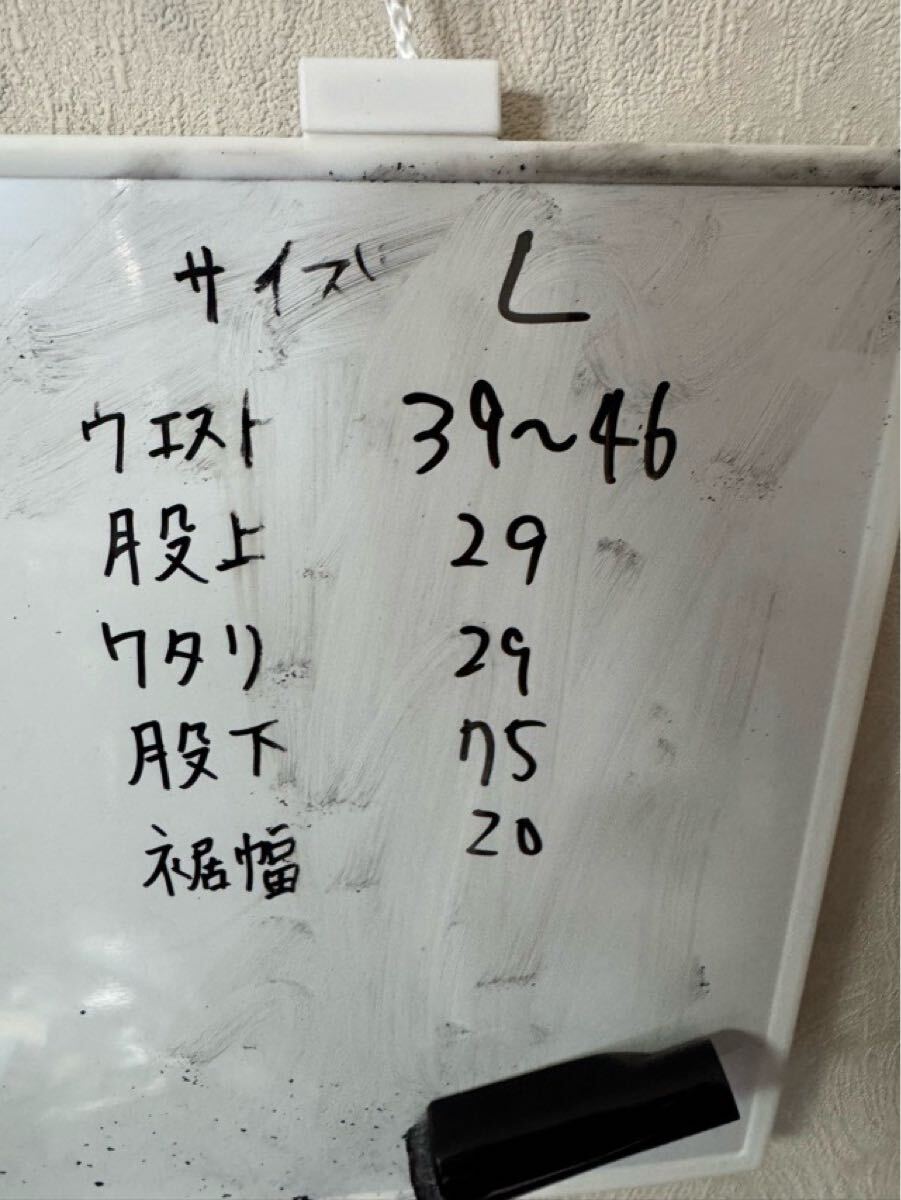 サイズ L
ウエスト 39~46
股上 29
ワタリ 29
股下 75
裾幅 20